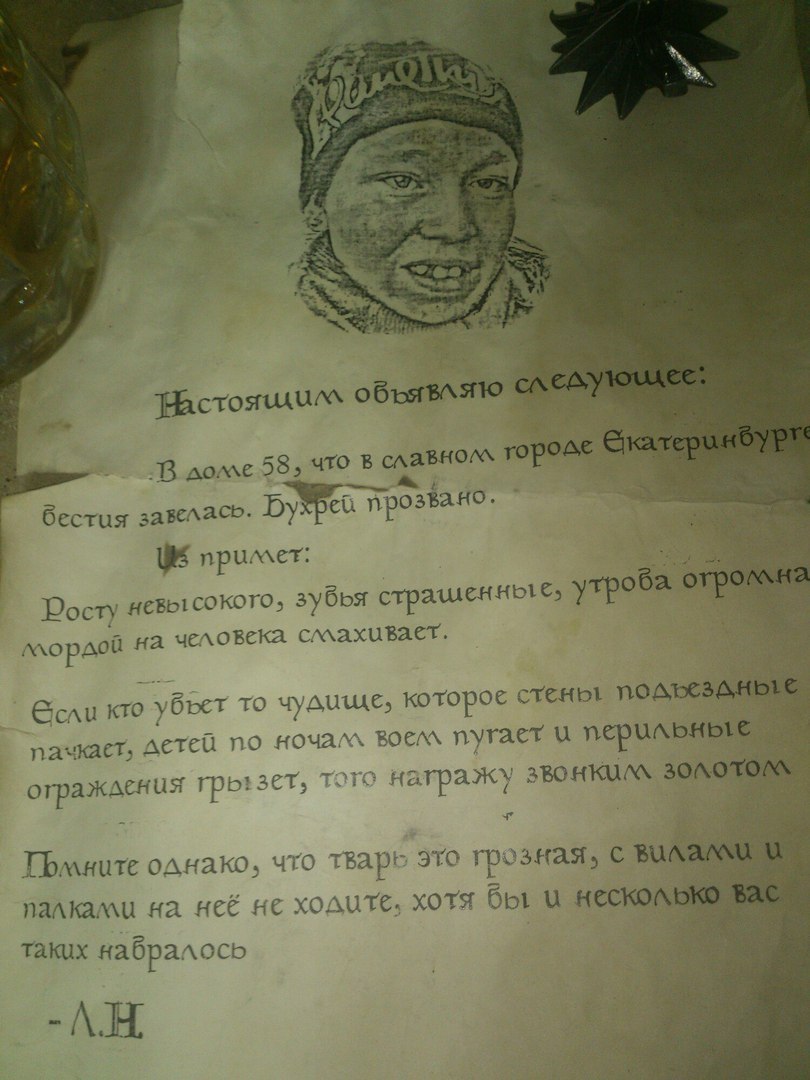 Настоящим объявляю следующее:
В доме 58, что в славном городе Екатеринбурге
бестия завелась. Бухрей прозвано.
Из примет:
Росту невысокого, зубья страшенные, утроба огромна
мордой на человека смахивает.
Если кто убьет то чудище, которое стены подъездные
пачкает, детей по ночам воем пугает и перильные
ограждения грызет, того награжу звонким золотом
Помните однако, что тварь это грозная, с вилами и
палками на неё не ходите, хотя бы и несколько вас
таких набралось
- Л.Н